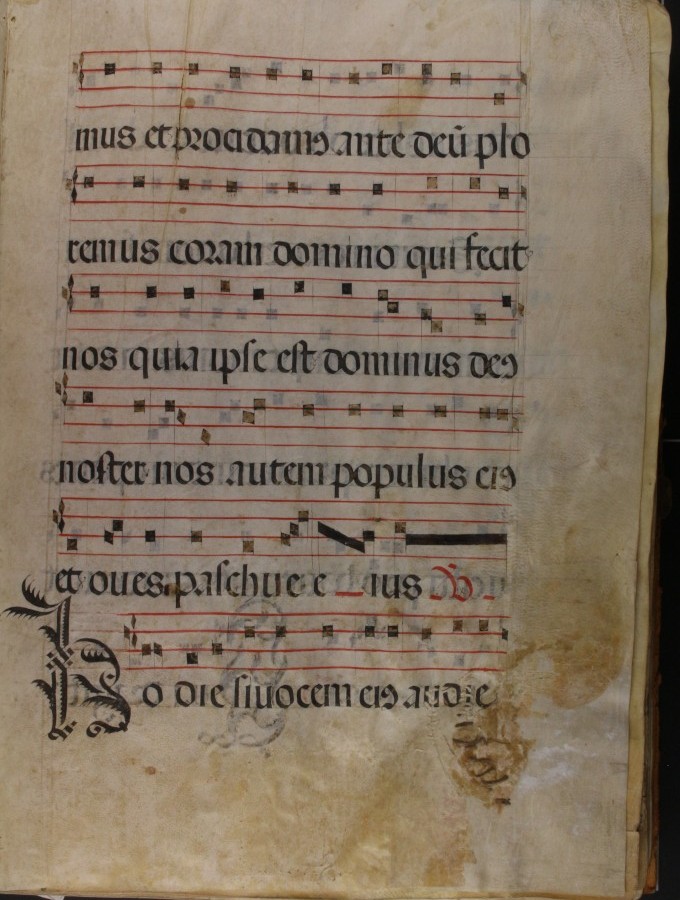 mus et procidam9 ante deū plo
remus coram domino qui fecit
nos quia ipse est dominus de9
noster nos autem populus ei9
et oues paschue e ius
Ho die si uocem ei9 audie